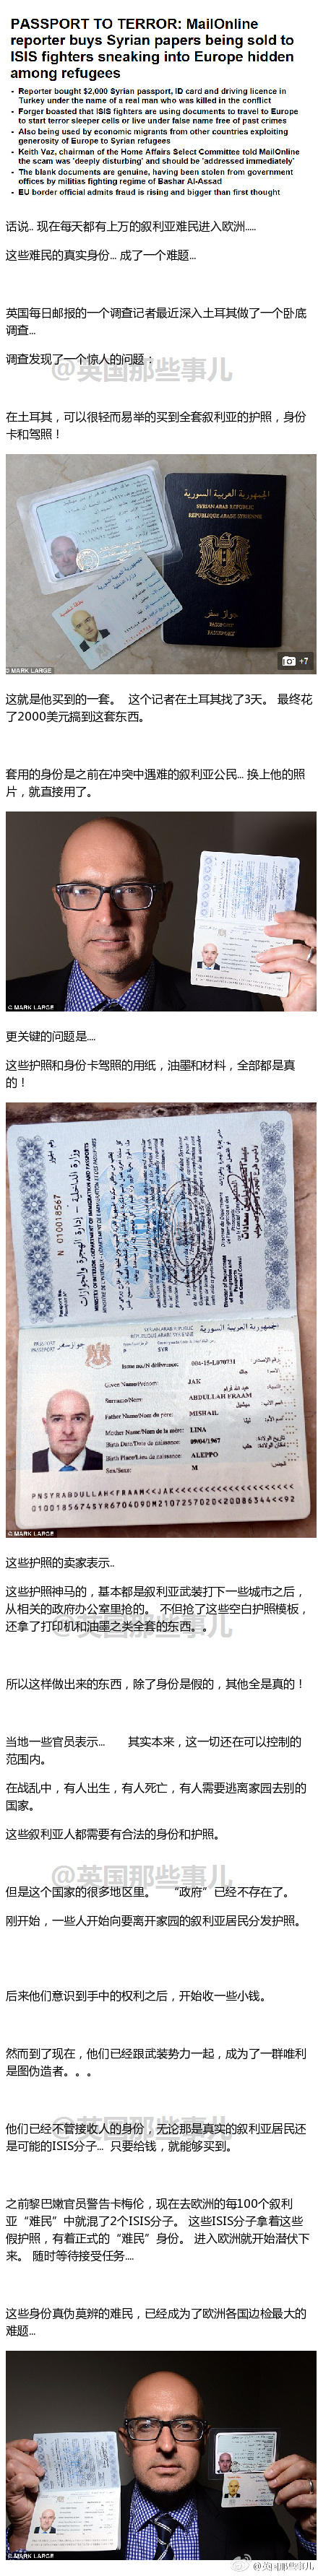 PASSPORT TO TERROR: MailOnline
reporter buys Syrian papers being sold to
ISIS fighters sneaking into Europe hidden
among refugees
- Reporter bought $2,000 Syrian passport, ID card and driving licence in
Turkey under the name of a real man who was killed in the conflict
- Forger boasted that ISIS fighters are using documents to travel to Europe
to start terror sleeper cells or live under false name free of past crimes
- Also being used by economic migrants from other countries exploiting
generosity of Europe to Syrian refugees
- Keith Vaz, chairman of the Home Affairs Select Committee told MailOnline
the scam was 'deeply disturbing' and should be 'addressed immediately'
- The blank documents are genuine, having been stolen from government
offices by militias fighting regime of Bashar Al-Assad
- EU border official admits fraud is rising and bigger than first thought
话说.. 现在每天都有上万的叙利亚难民进入欧洲.....
这些难民的真实身份... 成了一个难题...
英国每日邮报的一个调查记者最近深入土耳其做了一个卧底
调查...
调查发现了一个惊人的问题：
@英国那些事儿
在土耳其，可以很轻而易举的买到全套叙利亚的护照，身份
卡和驾照！
الجمهورية العربية السورية
SYRIAN ARAB REPUBLIC
REPUBLIQUE ARABE SYRIENNE
جواز سفر
PASSPORT
PASSEPORT
+7
© MARK LARGE
这就是他买到的一套。 这个记者在土耳其找了3天。 最终花
了2000美元搞到这套东西。
套用的身份是之前在冲突中遇难的叙利亚公民... 换上他的照
片，就直接用了。
© MARK LARGE
更关键的问题是....
这些护照和身份卡驾照的用纸，油墨和材料，全部都是真
的！
N 010018567
وزارة الداخلية - إدارة الهجرة والجوازات
SYRIAN ARAB REPUBLIC
REPUBLIQUE ARABE SYRIENNE
الجمهورية العربية السورية
PASSPORT
PASSEPORT
جواز سفر
SYR
004-15-L070731
Given Name/Prénom:
JAK
Surname/Nom:
ABDULLAH FRAAM
Father Name/Nom du père:
MISHAIL
Mother Name/Nom de la mère:
LINA
Birth Date/Date de naissance:
09/04/1967
Birth Place/Lieu de naissance:
ALEPPO
Sex/Sexe:
M
© MARK LARGE
这些护照的卖家表示..
这些护照神马的，基本都是叙利亚武装打下一些城市之后，
从相关的政府办公室里抢的。 不但抢了这些空白护照模板，
还拿了打印机和油墨之类全套的东西。。
@英国那些事儿
所以这样做出来的东西，除了身份是假的，其他全是真的！
当地一些官员表示... 其实本来，这一切还在可以控制的
范围内。
在战乱中，有人出生，有人死亡，有人需要逃离家园去别的
国家。
这些叙利亚人都需要有合法的身份和护照。
@英国那些事儿
但是这个国家的很多地区里。 “政府”已经不存在了。
刚开始，一些人开始向要离开家园的叙利亚居民分发护照。
后来他们意识到手中的权利之后，开始收一些小钱。
然而到了现在，他们已经跟武装势力一起，成为了一群唯利
是图伪造者。。。
@英国那些事儿
他们已经不管接收人的身份，无论那是真实的叙利亚居民还
是可能的ISIS分子... 只要给钱，就能够买到。
之前黎巴嫩官员警告卡梅伦，现在去欧洲的每100个叙利
亚“难民”中就混了2个ISIS分子。 这些ISIS分子拿着这些
假护照，有着正式的“难民”身份。 进入欧洲就开始潜伏下
来。 随时等待接受任务....
这些身份真伪莫辨的难民，已经成为了欧洲各国边检最大的
难题...
© MARK LARGE
@英国那些事儿